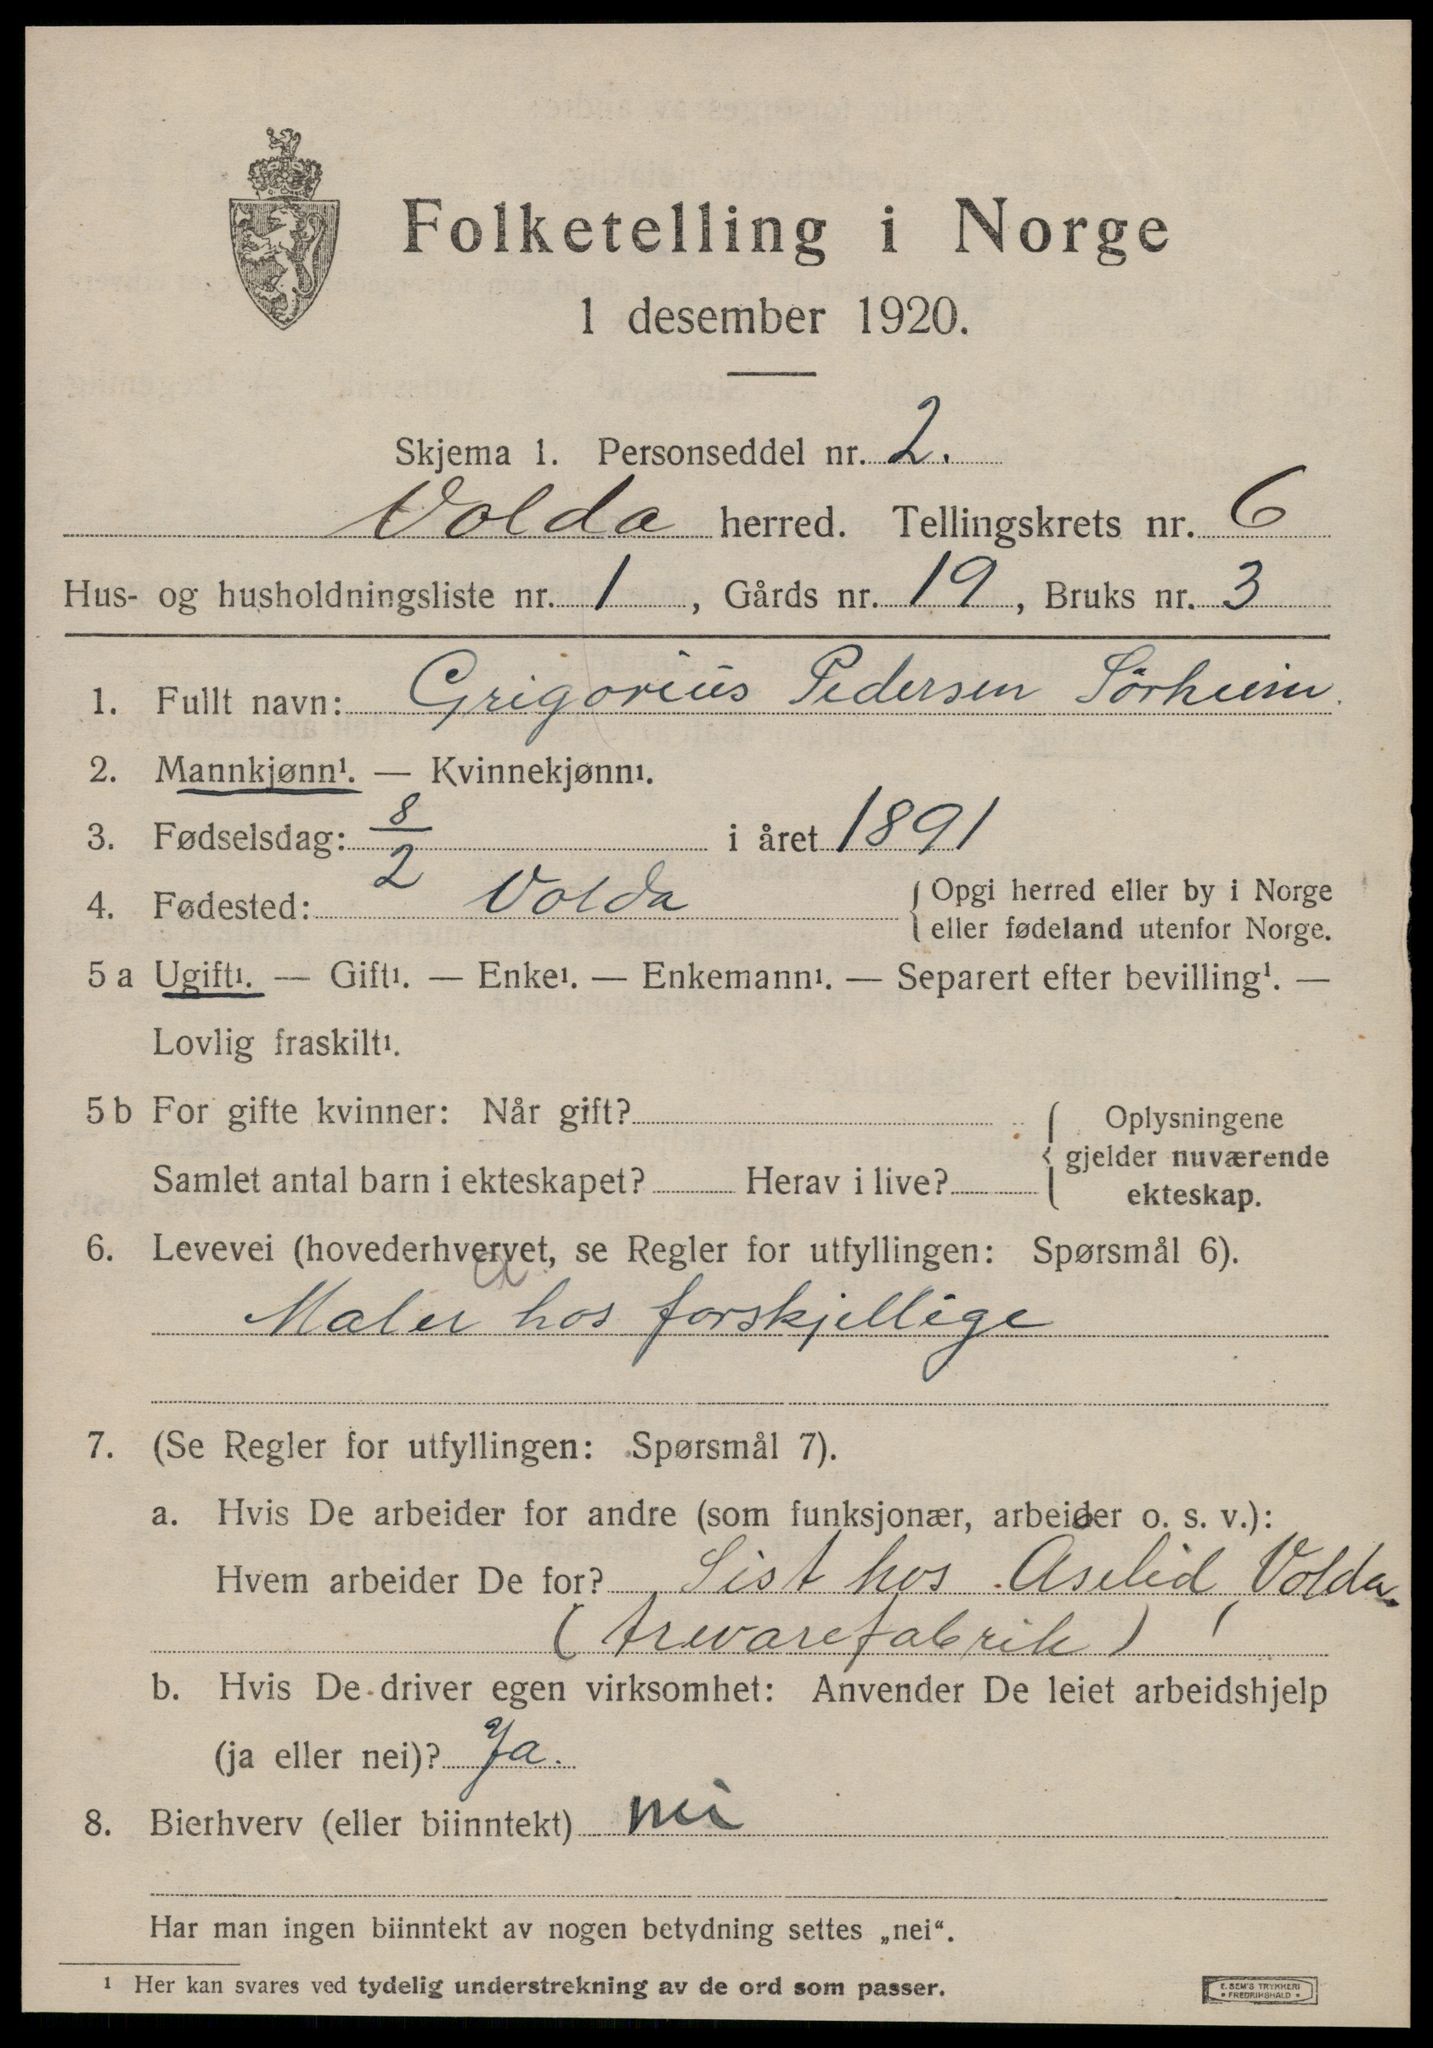 Folketelling i Norge
1 desember 1920.
Skjema 1. Personseddel nr. 2.
Volda herred. Tellingskrets nr. 6
Hus- og husholdningsliste nr. 1, Gårds nr. 19, Bruks nr. 3
1. Fullt navn: Grigorius Pedersen Sörheim.
2. Mannkjønn¹. — Kvinnekjønn¹.
3. Fødselsdag: 8/2 i året 1891
4. Fødested: Volda { Opgi herred eller by i Norge
eller fødeland utenfor Norge.
5 a Ugift¹. — Gift¹. — Enke¹. — Enkemann¹. — Separert efter bevilling¹. —
Lovlig fraskilt¹.
5 b For gifte kvinner: Når gift? { Oplysningene
gjelder nuværende
ekteskap.
Samlet antal barn i ekteskapet? Herav i live?
6. Levevei (hovederhvervet, se Regler for utfyllingen: Spørsmål 6).
a
Maler hos forskjellige
7. (Se Regler for utfyllingen: Spørsmål 7).
a. Hvis De arbeider for andre (som funksjonær, arbeider o. s. v.):
Hvem arbeider De for? Sist hos Aselid, Volda.
(trevarefabrik)
b. Hvis De driver egen virksomhet: Anvender De leiet arbeidshjelp
(ja eller nei)? Ja.
8. Bierhverv (eller biinntekt) nei
Har man ingen biinntekt av nogen betydning settes „nei“.
¹ Her kan svares ved tydelig understrekning av de ord som passer.
E. SEM'S TRYKKERI
• FREDRIKSHALD •